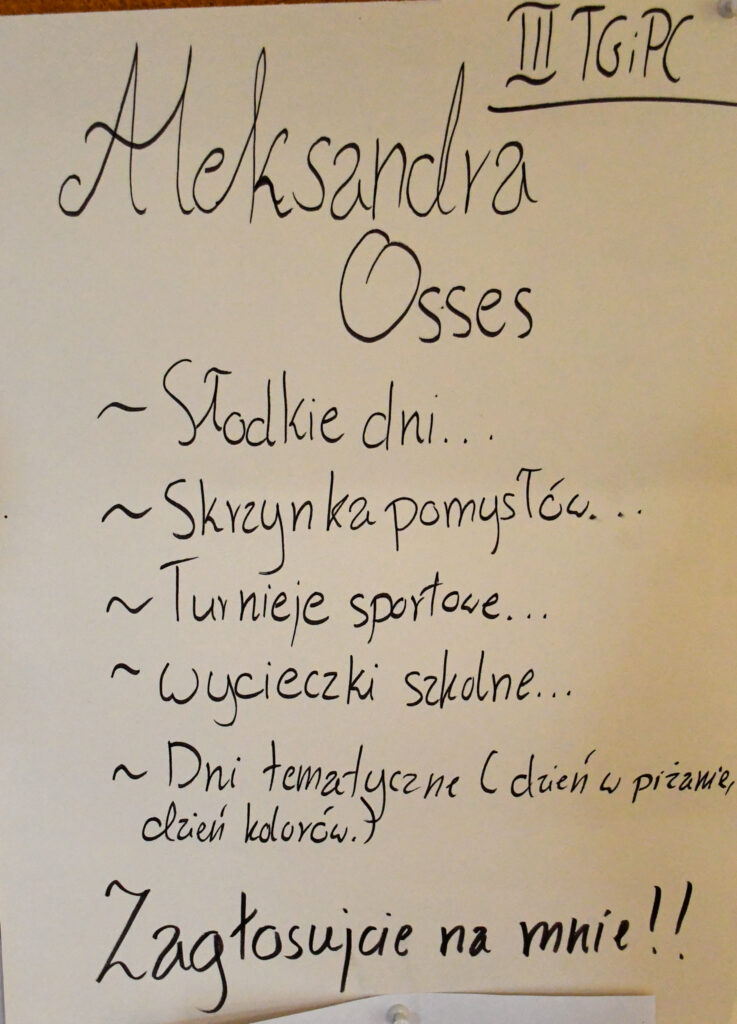 III TGiPC
Aleksandra
Osses
~ Słodkie dni...
~ Skrzynka pomysłów...
~ Turnieje sportowe...
~ wycieczki szkolne...
~ Dni tematyczne ( dzień w piżamie,
dzień kolorów.)
Zagłosujcie na mnie!!